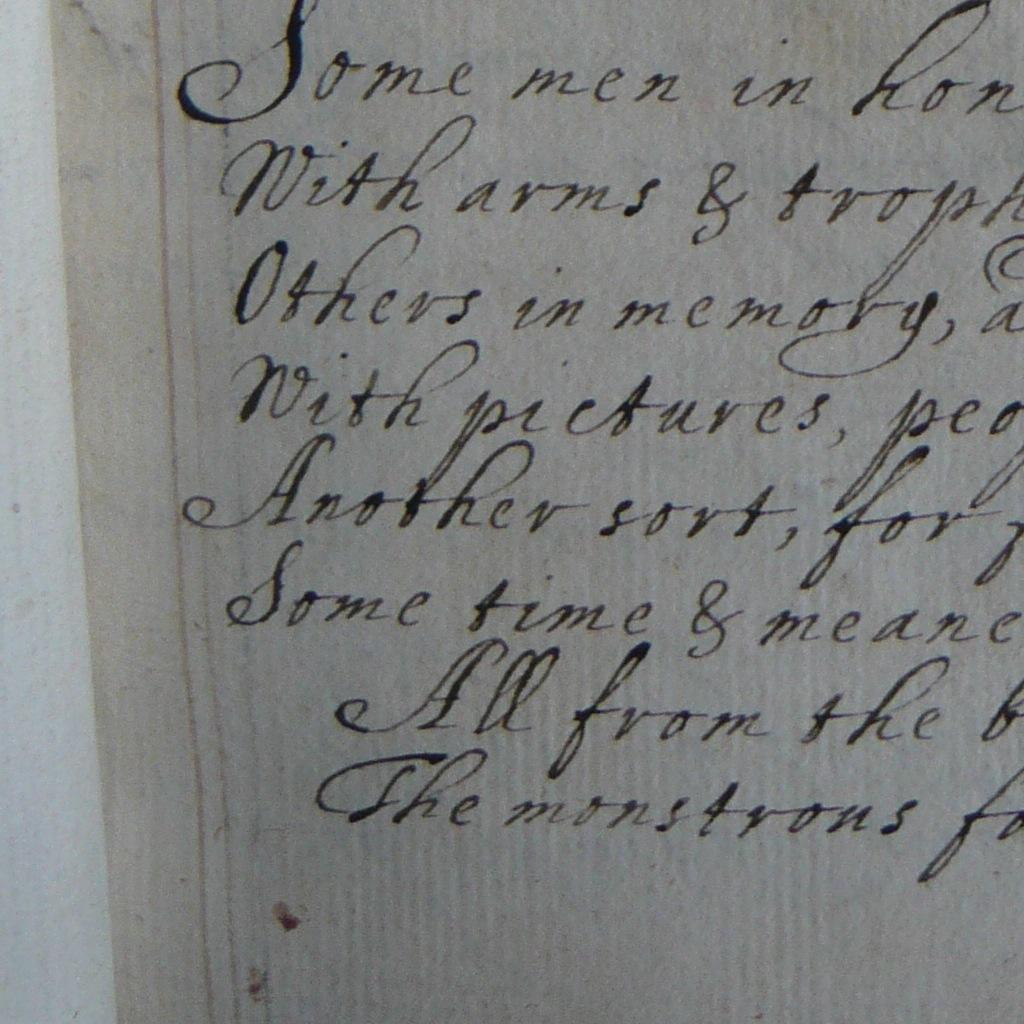 Some men in hon
With arms & troph
Others in memory, a
With pictures, peo
Another sort, for
Some time & meane
All from the b
The monstrous fo